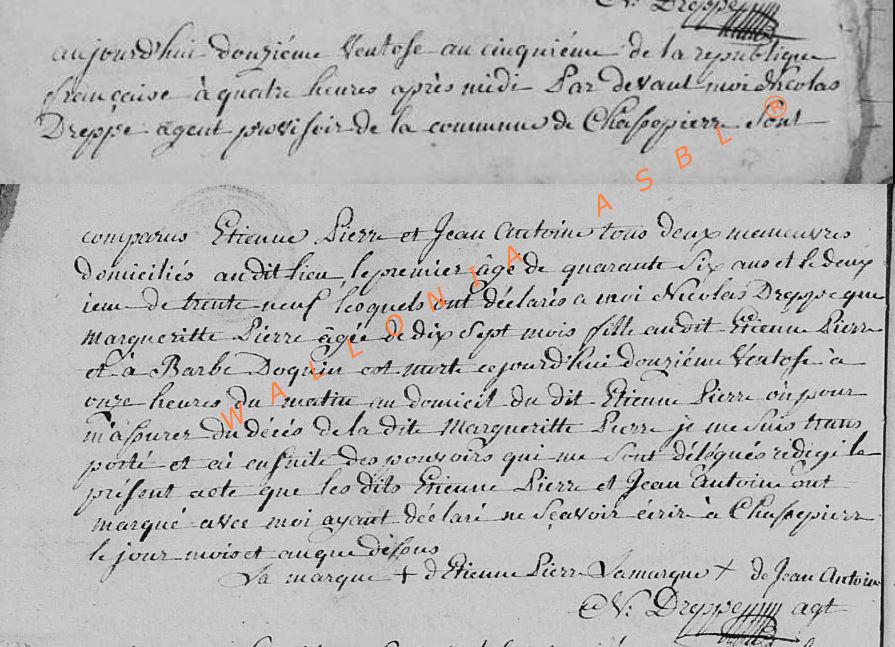 N: Dreppe
aujourd'hui douziéme Ventose an cinquiéme de la republique
française à quatre heures après midi Par devant moi Nicolas
Dreppe agent provisoir de la commune de Chassepierre Sont
comparus Etienne Pierre et Jean Antoine tous deux maneuvres
domiciliés audit lieu, le premier âgé de quarante Six ans et le deux
ieme de trente neuf lesquels ont déclarés a moi Nicolas Dreppe que
Margueritte Pierre âgée de dix Sept mois fille audit Etienne Pierre
et à Barbe Doquin est morte cejourd'hui douziéme Ventose à
onze heures du matin au domicil du dit Etienne Pierre où pour
m'assurer du décés de la dite Margueritte Pierre je me suis trans
porté et ai ensuite des pouvoirs qui me Sont délégués rédigé le
présent acte que les dits Etienne Pierre et Jean Antoine ont
marqué avec moi ayant déclaré ne Sçavoir écrire à Chassepierre
le jour mois et an que dessus
La marque + d'Etienne Pierre La marque + de Jean Antoine
N: Dreppe agt
WALLONIA ASBL ®